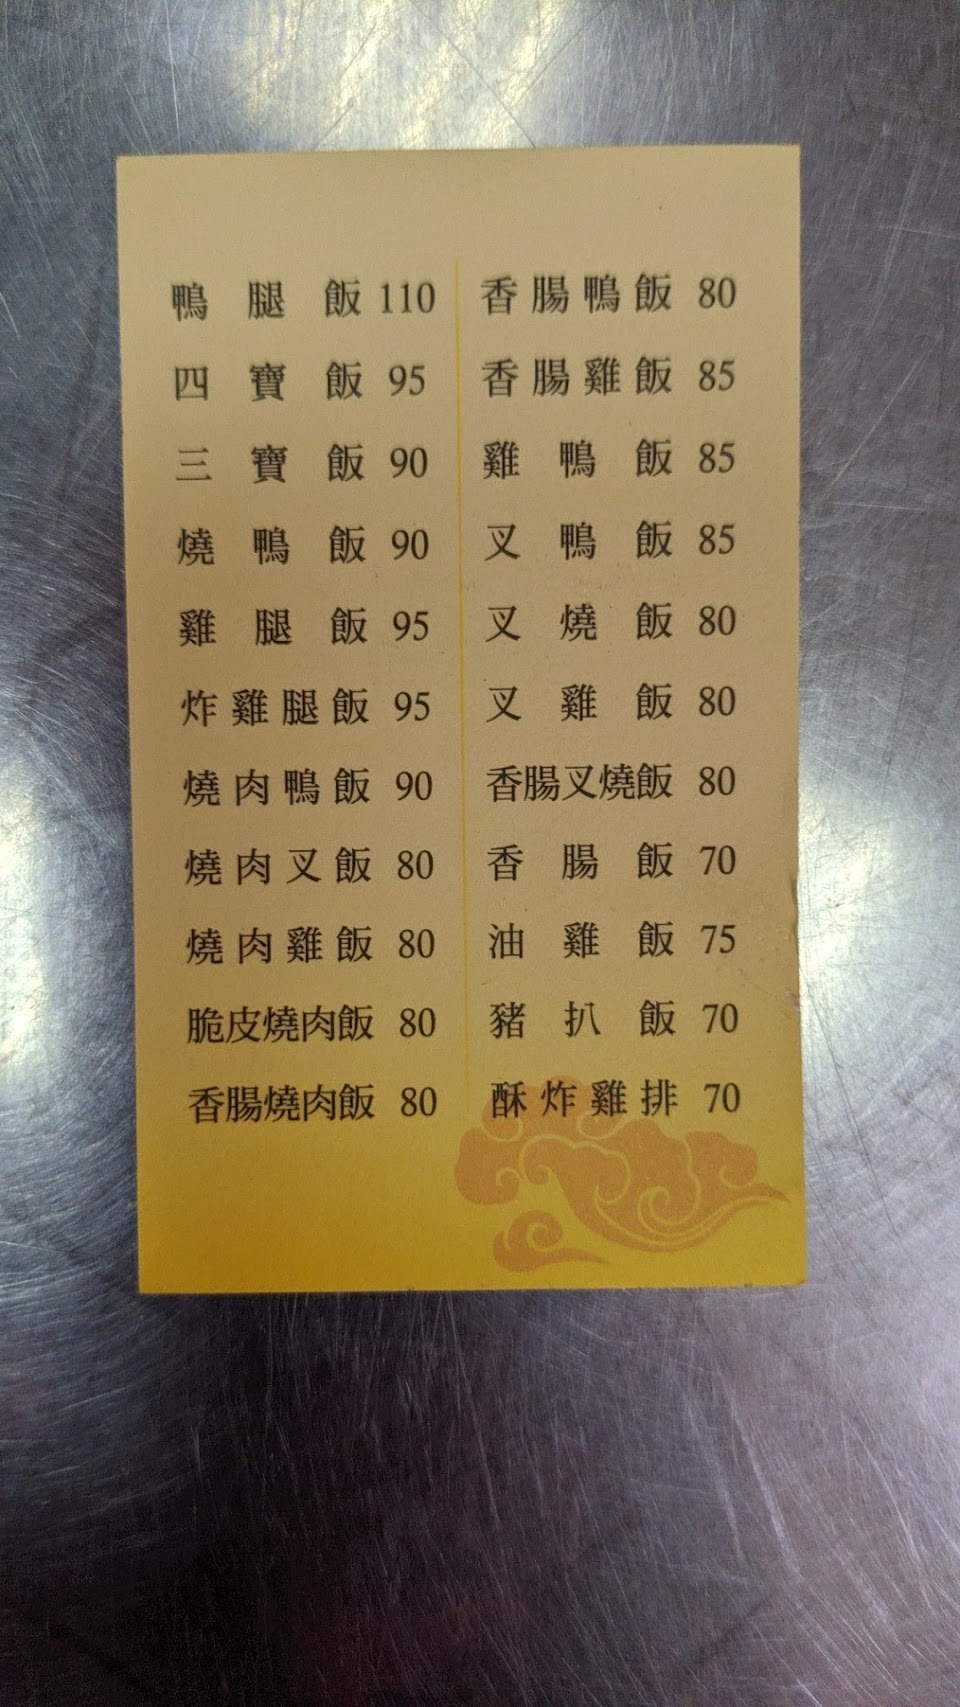 鴨腿飯 110
四寶飯 95
三寶飯 90
燒鴨飯 90
雞腿飯 95
炸雞腿飯 95
燒肉鴨飯 90
燒肉叉飯 80
燒肉雞飯 80
脆皮燒肉飯 80
香腸燒肉飯 80
香腸鴨飯 80
香腸雞飯 85
雞鴨飯 85
叉鴨飯 85
叉燒飯 80
叉雞飯 80
香腸叉燒飯 80
香腸飯 70
油雞飯 75
豬扒飯 70
酥炸雞排 70